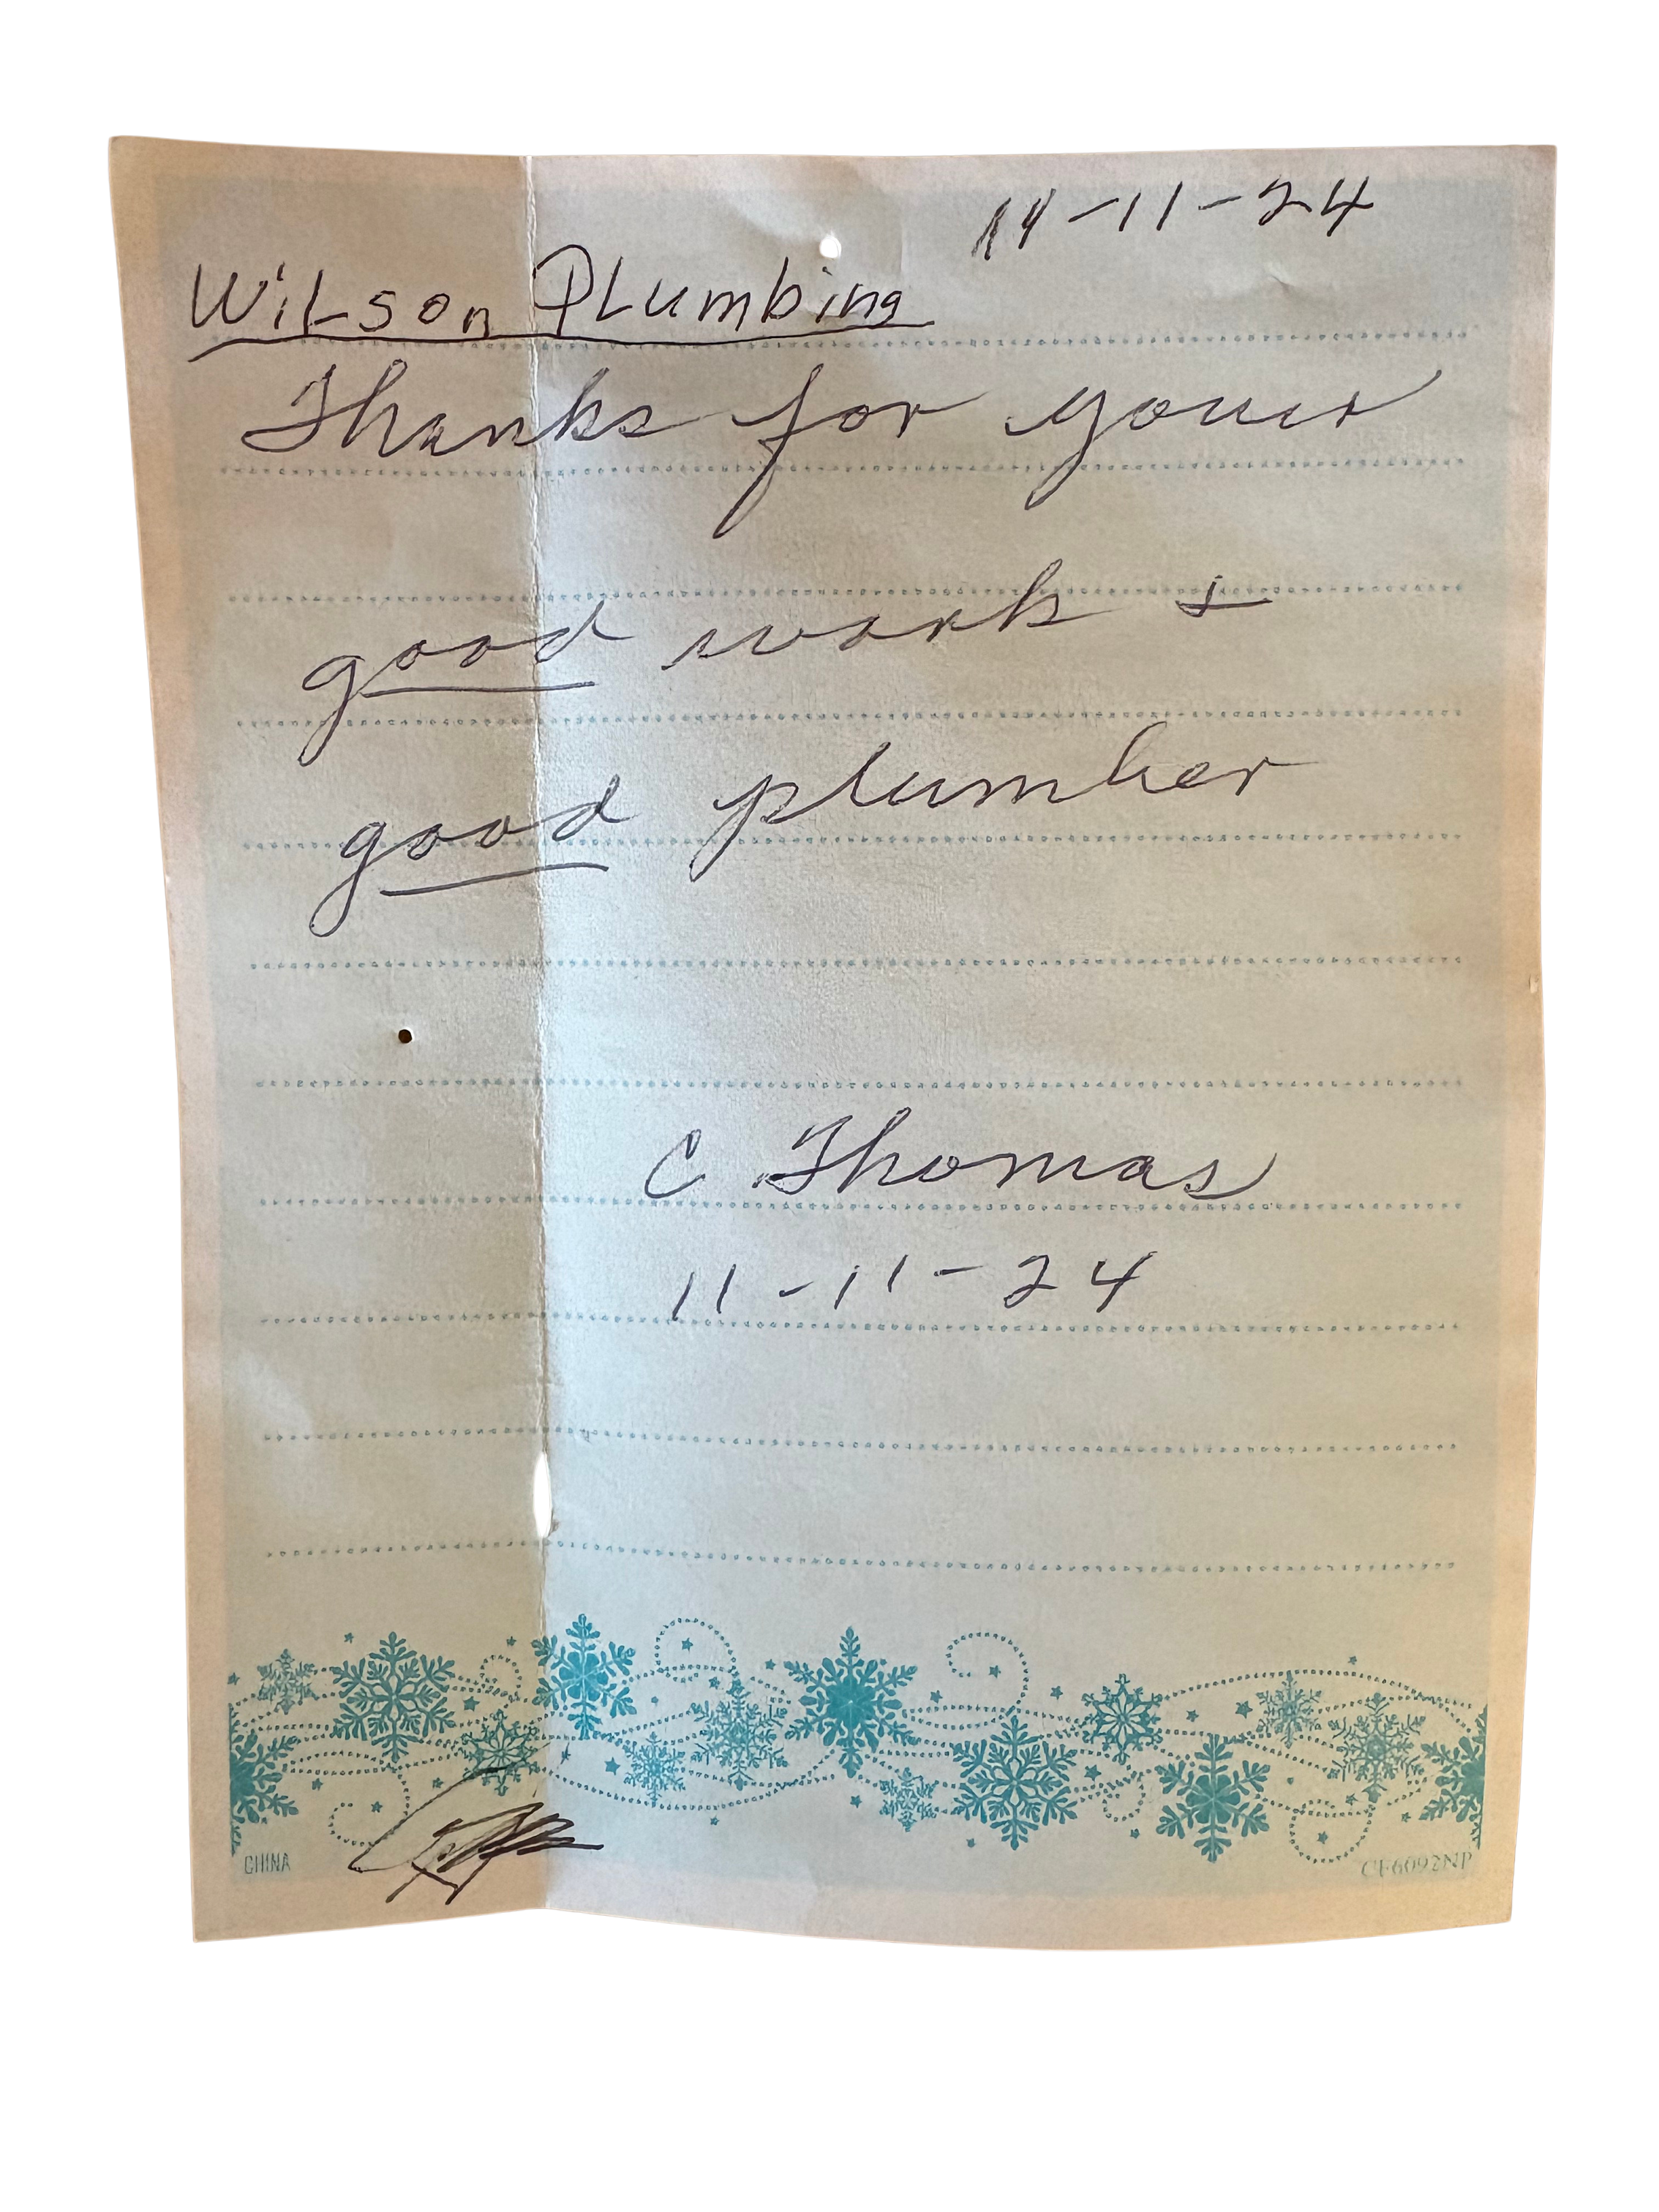 11-11-24
Wilson Plumbing
Thanks for your
good work &
good plumber
C Thomas
11-11-24
CHINA
CF6092NP